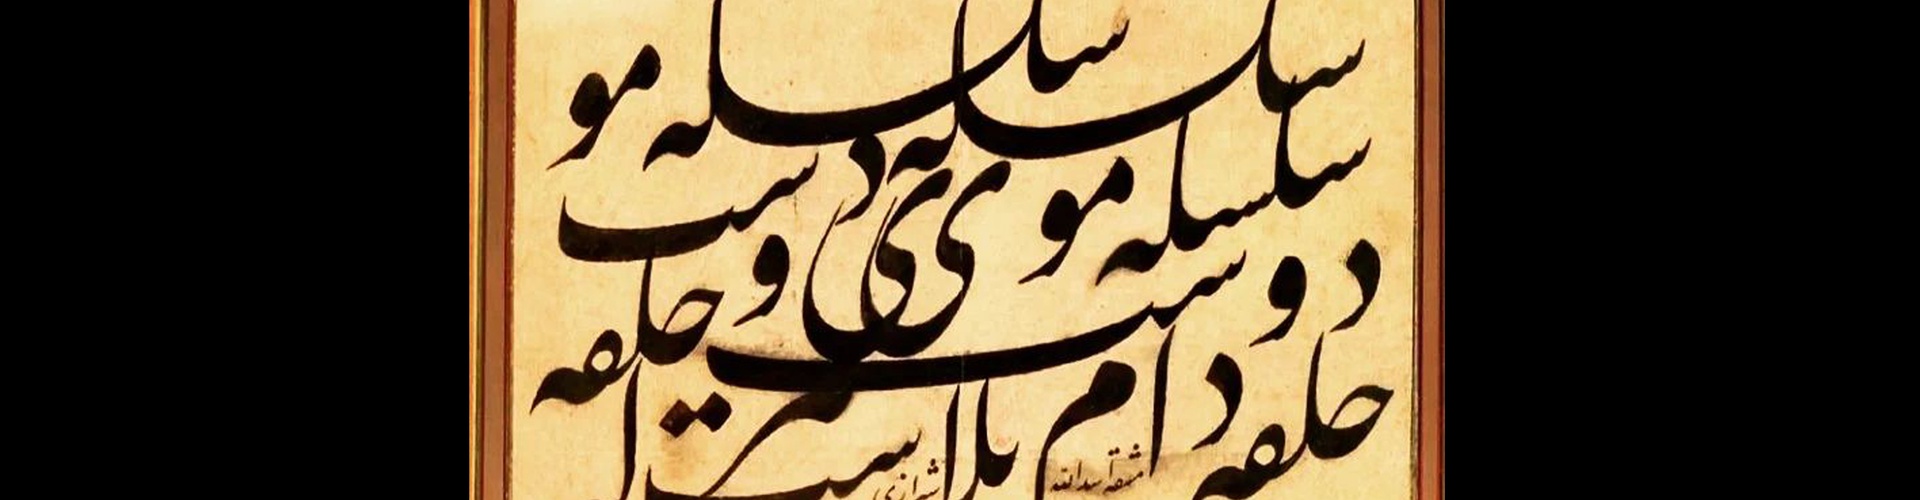 سلسله سلسله مو
سلسله موی ی دوست
دوست حلقه
حلقه دام بلاست
مشقه اسدالله شیرازی